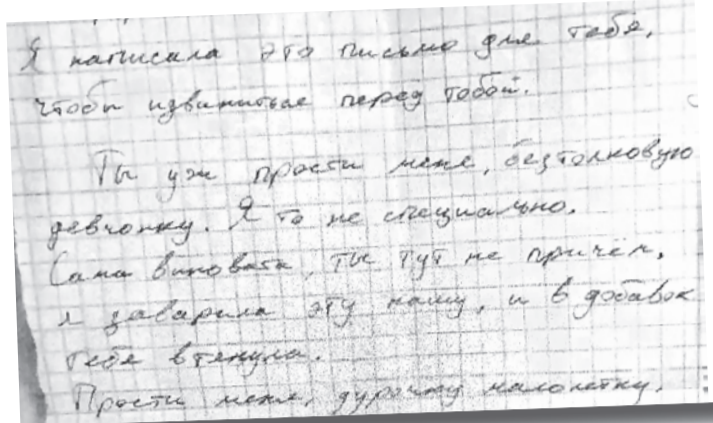 Я написала это письмо для тебя,
чтобы извиниться перед тобой.
Ты уж прости меня, безтолковую
девчонку. Я то не специально.
Сама виновата, ты тут не причём,
я заварила эту кашу, и в добавок
тебя втянула.
Прости меня, дурочку малолетку.